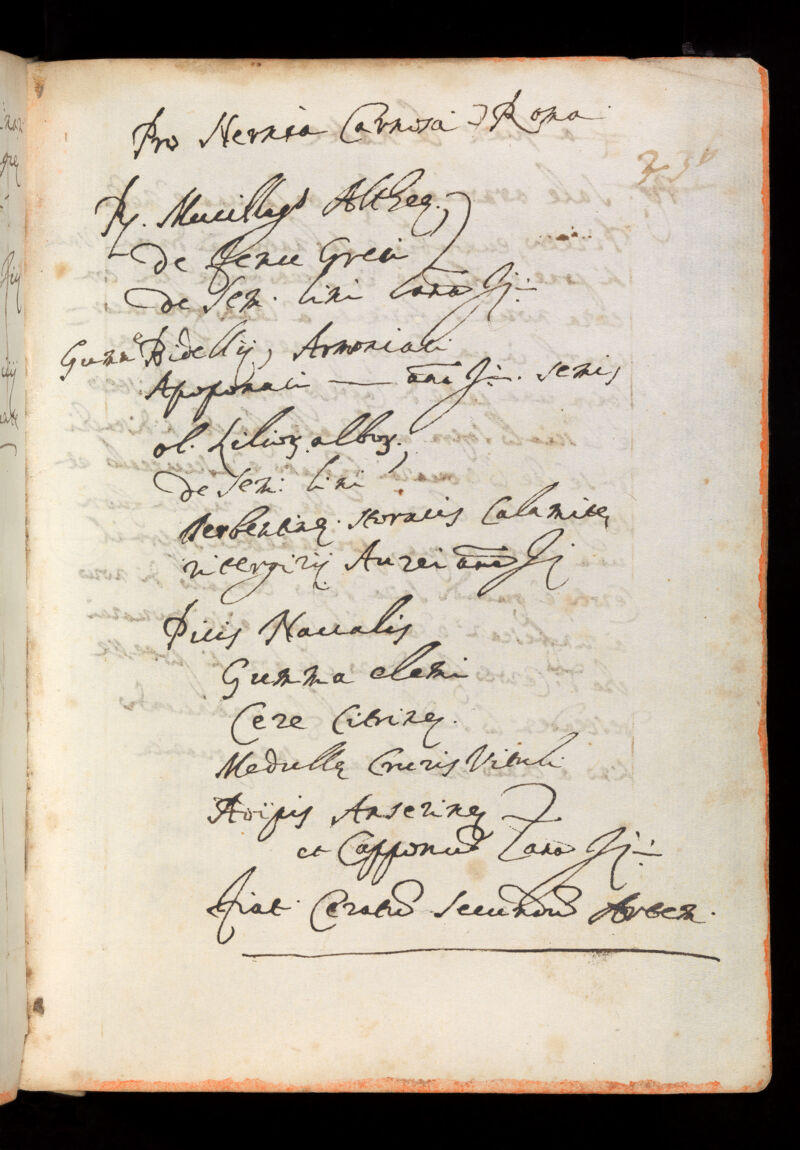 Pro Hernia Carnosa Roma
℞. Mucillags Altheę,
de fenu Greci
de Sem. lini ana ℥j.
Gum̄e Bidellij, Armoniaci
Apoponaci — ana ℥j. semis
ol. Lilioꝝ alboꝝ,
de Sem: lini
Terbentinę. storacis Calamitę
Litergirij Aurei ana ℥j
Picis Naualis
Gumma elemi
Cere Citrinę.
Medullę Cruris Vituli
Axipis Anserinę
et Capponis ana ℥j.
fiat Ceratū Secundū Artem.